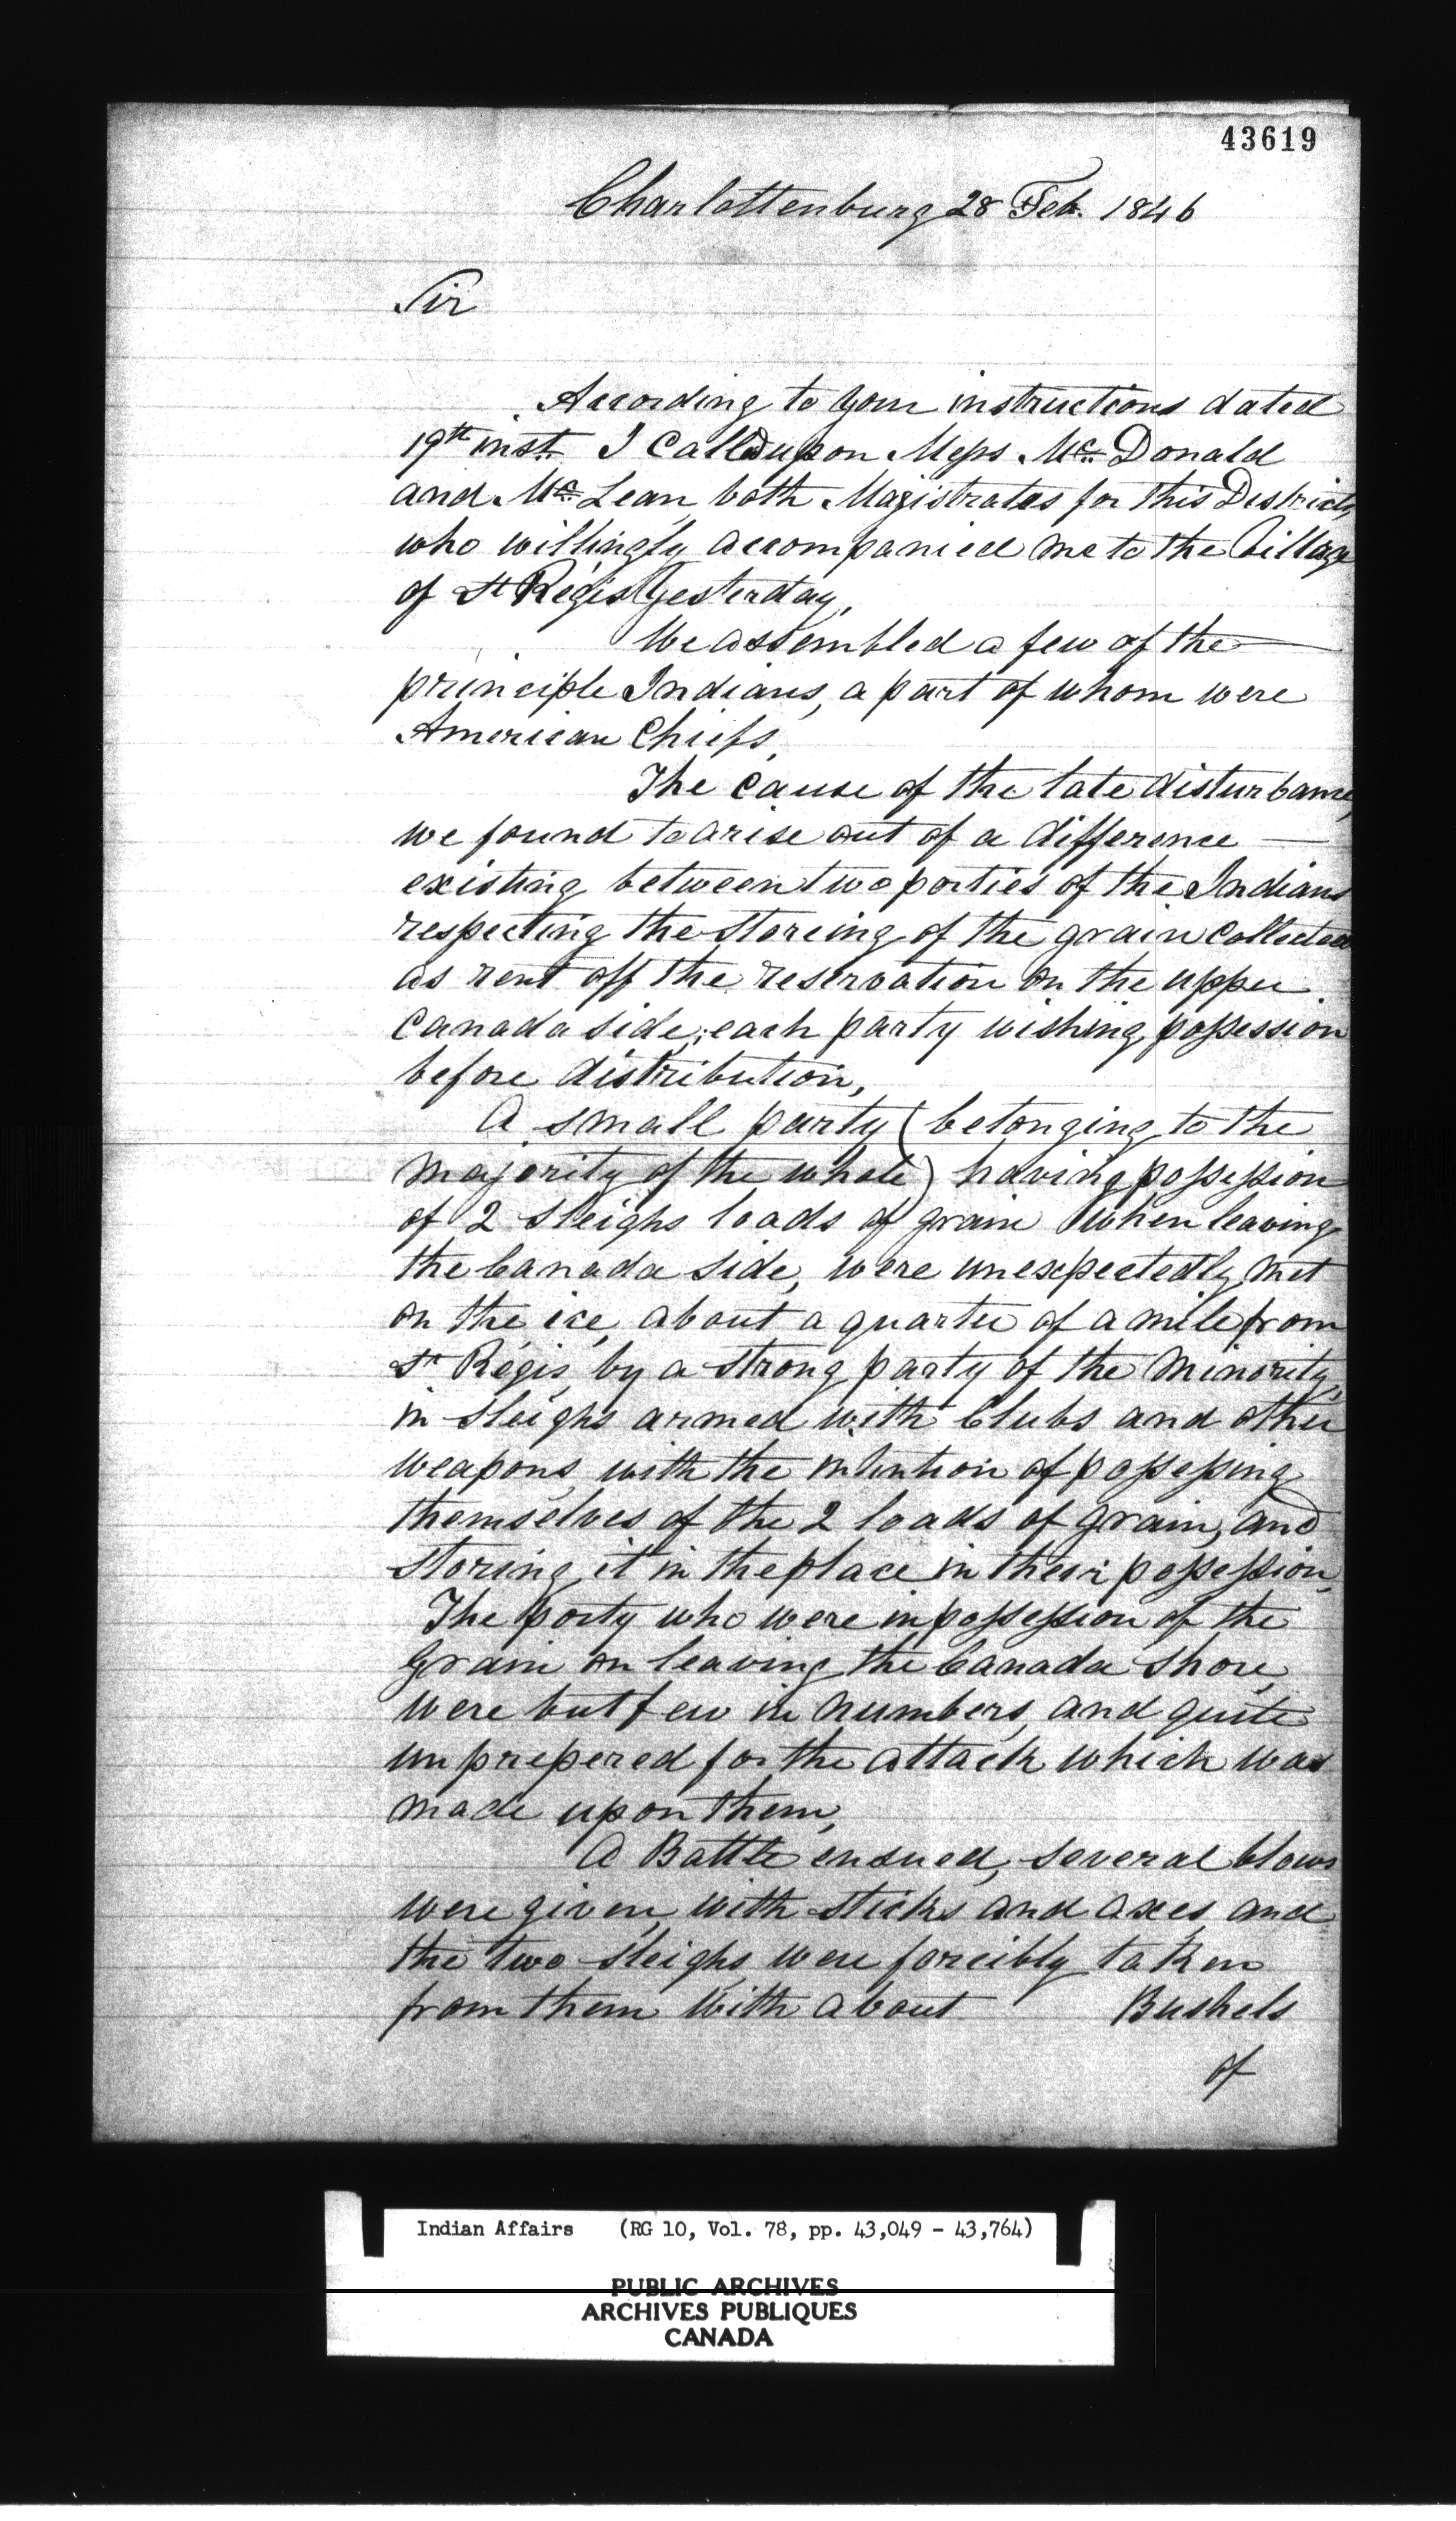 43619
Charlottenburg 28 Feb. 1846
Sir
According to your instructions dated
19th inst. I Called upon Mess. Mc. Donald
and Mc. Lean, both Magistrates for this District,
who willingly accompanied me to the Village
of St Régis Yesterday,
We assembled a few of the
principle Indians, a part of whom were
American Chiefs,
The Cause of the late disturbance,
we found to arise out of a difference
existing between two parties of the Indians
respecting the storeing of the grain collected
as rent off the reservation on the upper
Canada side; each party wishing possession
before distribution,
A small party (belonging to the
majority of the whole) having possession
of 2 sleighs loads of grain when leaving
the Canada side, were unexpectedly met
on the ice, about a quarter of a mile from
St Régis, by a strong party of the Minority,
in sleighs armed with Clubs and other
weapons, with the intention of possessing
themselves of the 2 loads of grain, and
storing it in the place in their possession,
The party who were in possession of the
Grain on leaving the Canada shore,
were but few in numbers, and quite
unprepered for the attack which was
made upon them,
A Battle ensued, several blows
were given, with sticks and axes, and
the two sleighs were forcibly taken
from them with about Bushels
of
Indian Affairs (RG 10, Vol. 78, pp. 43,049 - 43,764)
PUBLIC ARCHIVES
ARCHIVES PUBLIQUES
CANADA